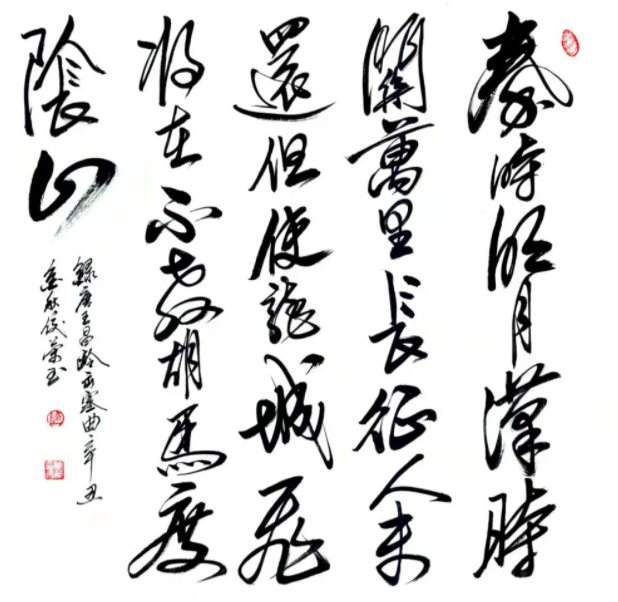 秦時明月漢時
關萬里長征人未
還但使龍城飛
將在不教胡馬度
陰山
錄唐王昌齡出塞曲辛丑